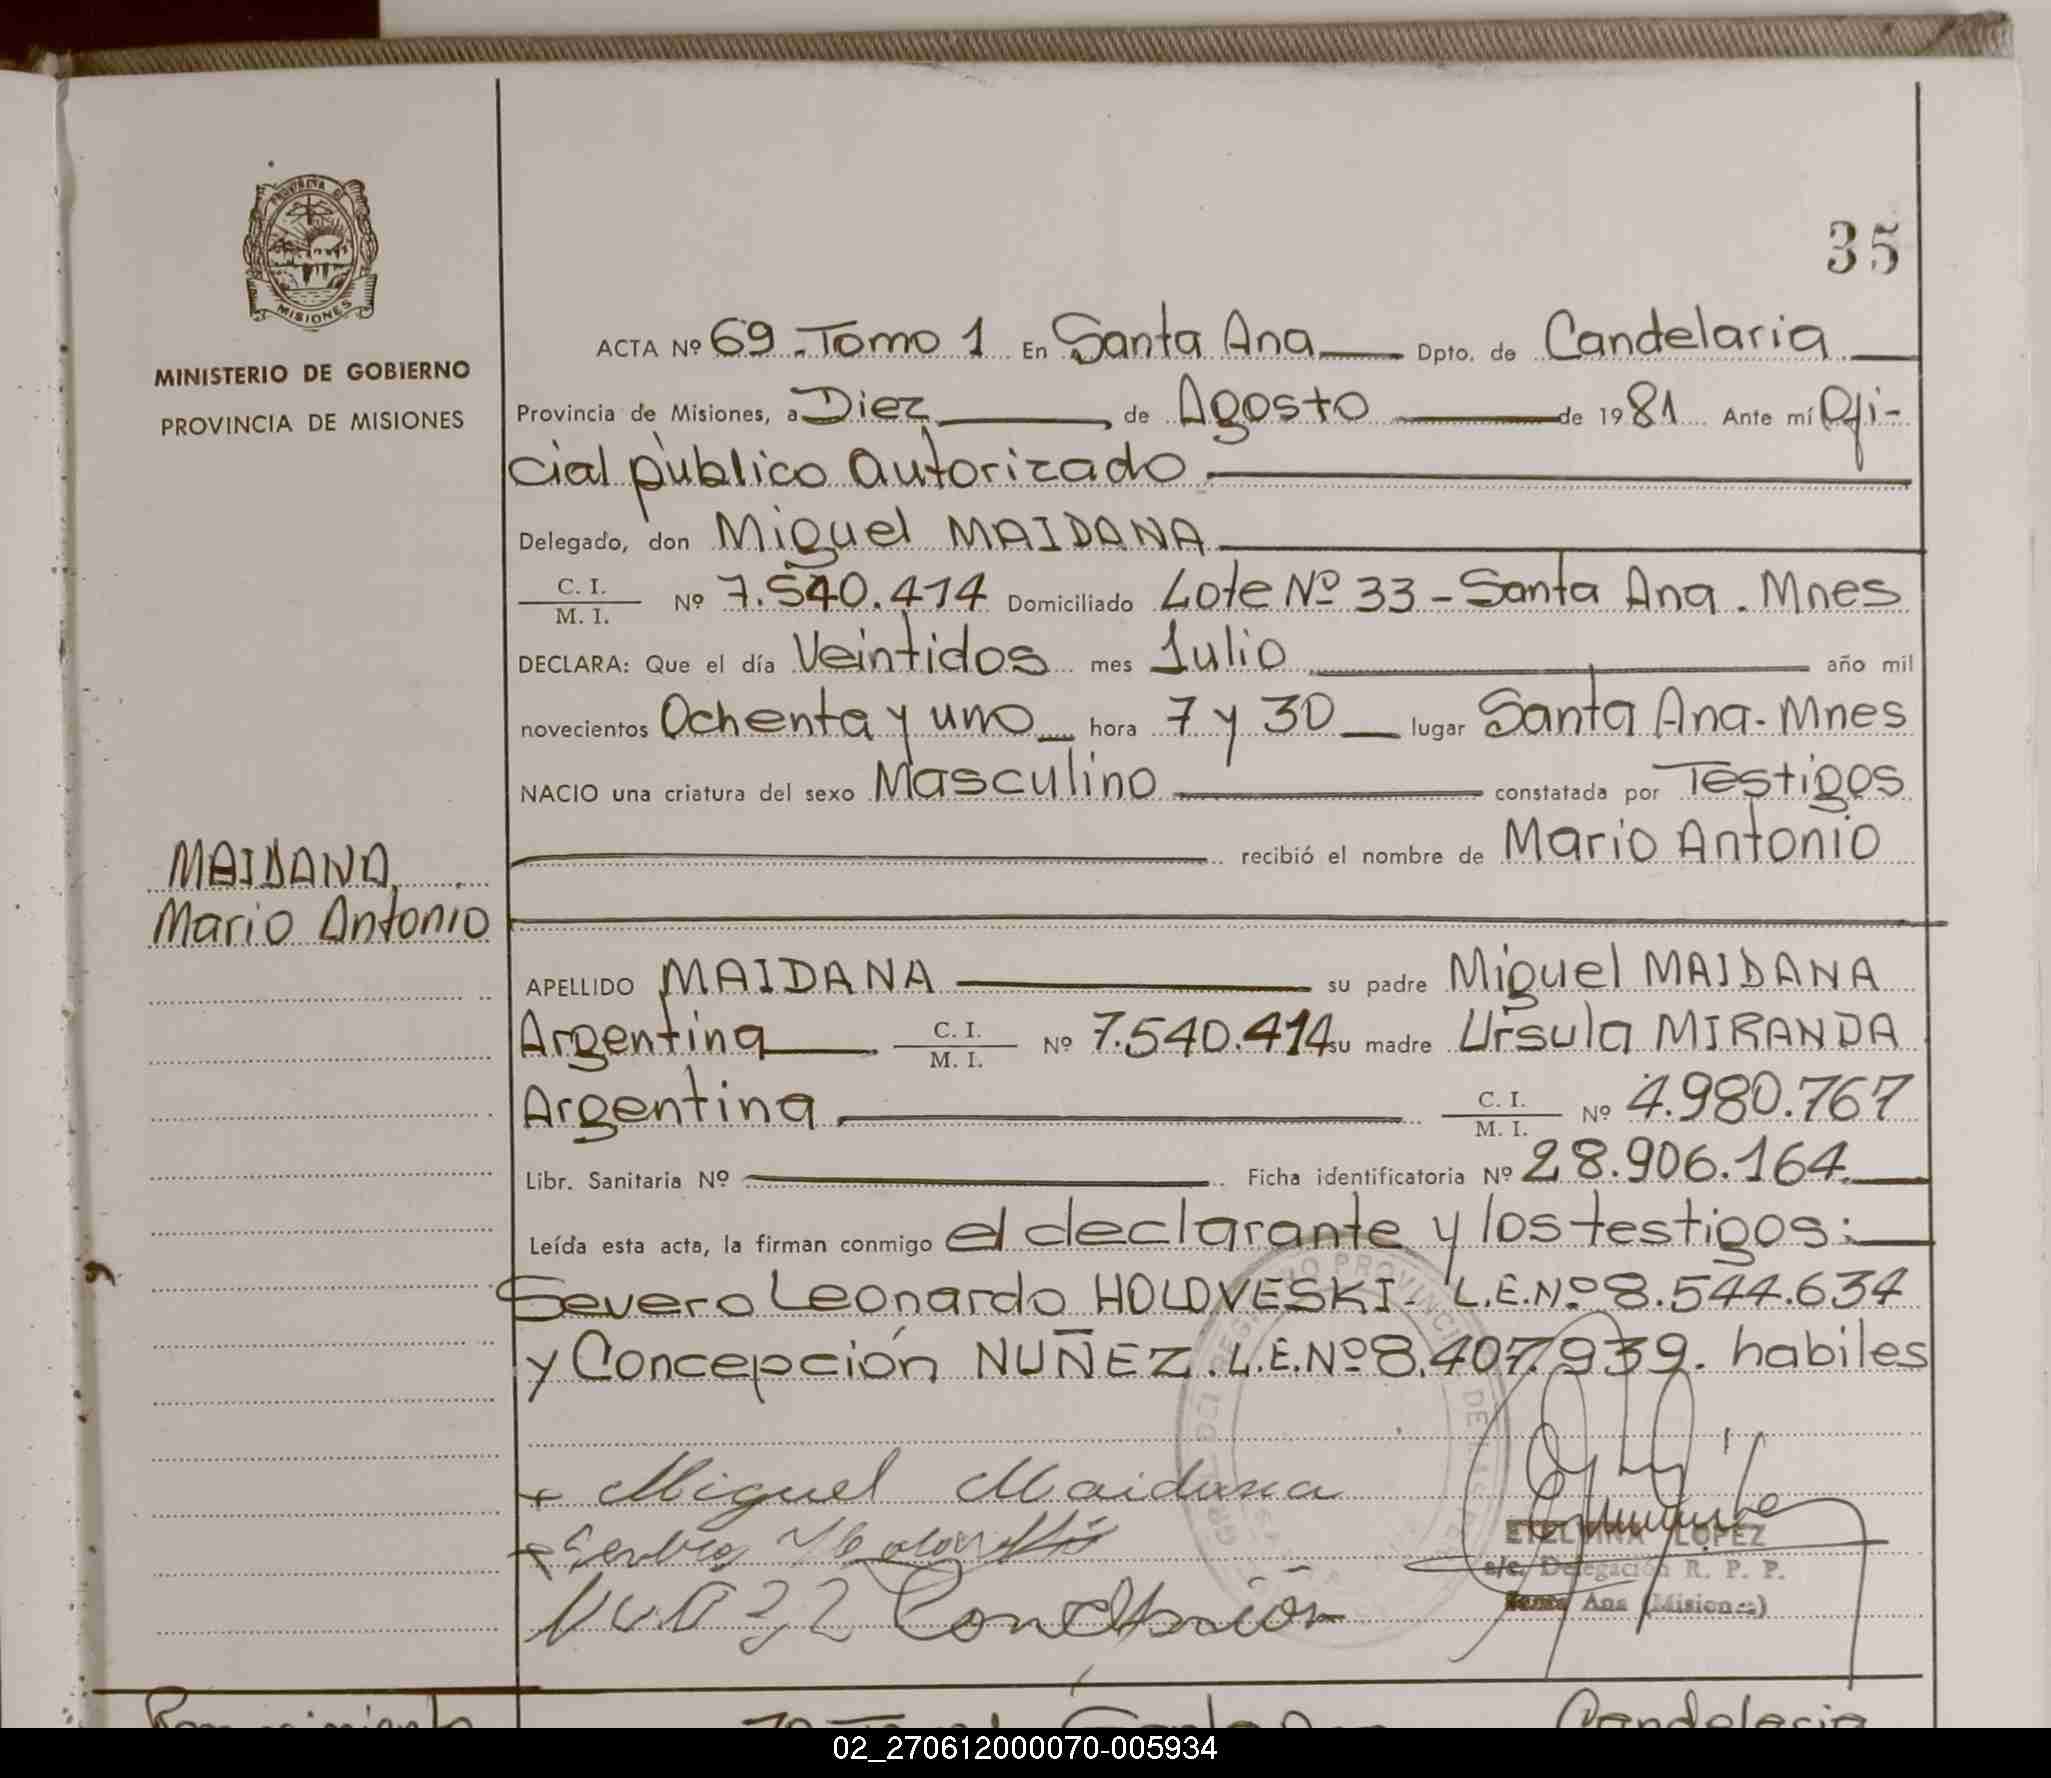 PROVINCIA DE
MISIONES
MINISTERIO DE GOBIERNO
PROVINCIA DE MISIONES
35
ACTA Nº 69. Tomo 1 En Santa Ana Dpto. de Candelaria
Provincia de Misiones, a Diez de Agosto de 1981 Ante mí Ofi-
cial público autorizado
Delegado, don Miguel MAIDANA
C. I.
M. I. Nº 7.540.414 Domiciliado Lote Nº 33 - Santa Ana. Mnes
DECLARA: Que el día Veintidos mes Julio año mil
novecientos Ochenta y uno hora 7 y 30 lugar Santa Ana. Mnes
NACIO una criatura del sexo Masculino constatada por Testigos
recibió el nombre de Mario Antonio
MAIDANA,
Mario Antonio
APELLIDO MAIDANA su padre Miguel MAIDANA
Argentina C. I.
M. I. Nº 7.540.414 su madre Ursula MIRANDA
Argentina C. I.
M. I. Nº 4.980.767
Libr. Sanitaria Nº Ficha identificatoria Nº 28.906.164.
Leída esta acta, la firman conmigo el declarante y los testigos:
Severo Leonardo HOLOVESKI- L.E.Nº 8.544.634
y Concepción NUÑEZ. L.E.Nº 8.407.939. habiles
Miguel Maidana
Concepción
ETELVINA LOPEZ
a/c. Delegación R. P. P.
Santa Ana (Misiones)
Santa Ana Candelaria
02_270612000070-005934